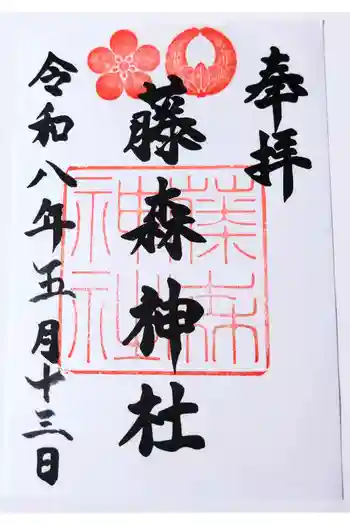 奉拝
藤森神社
藤森
神社
令和八年五月十三日